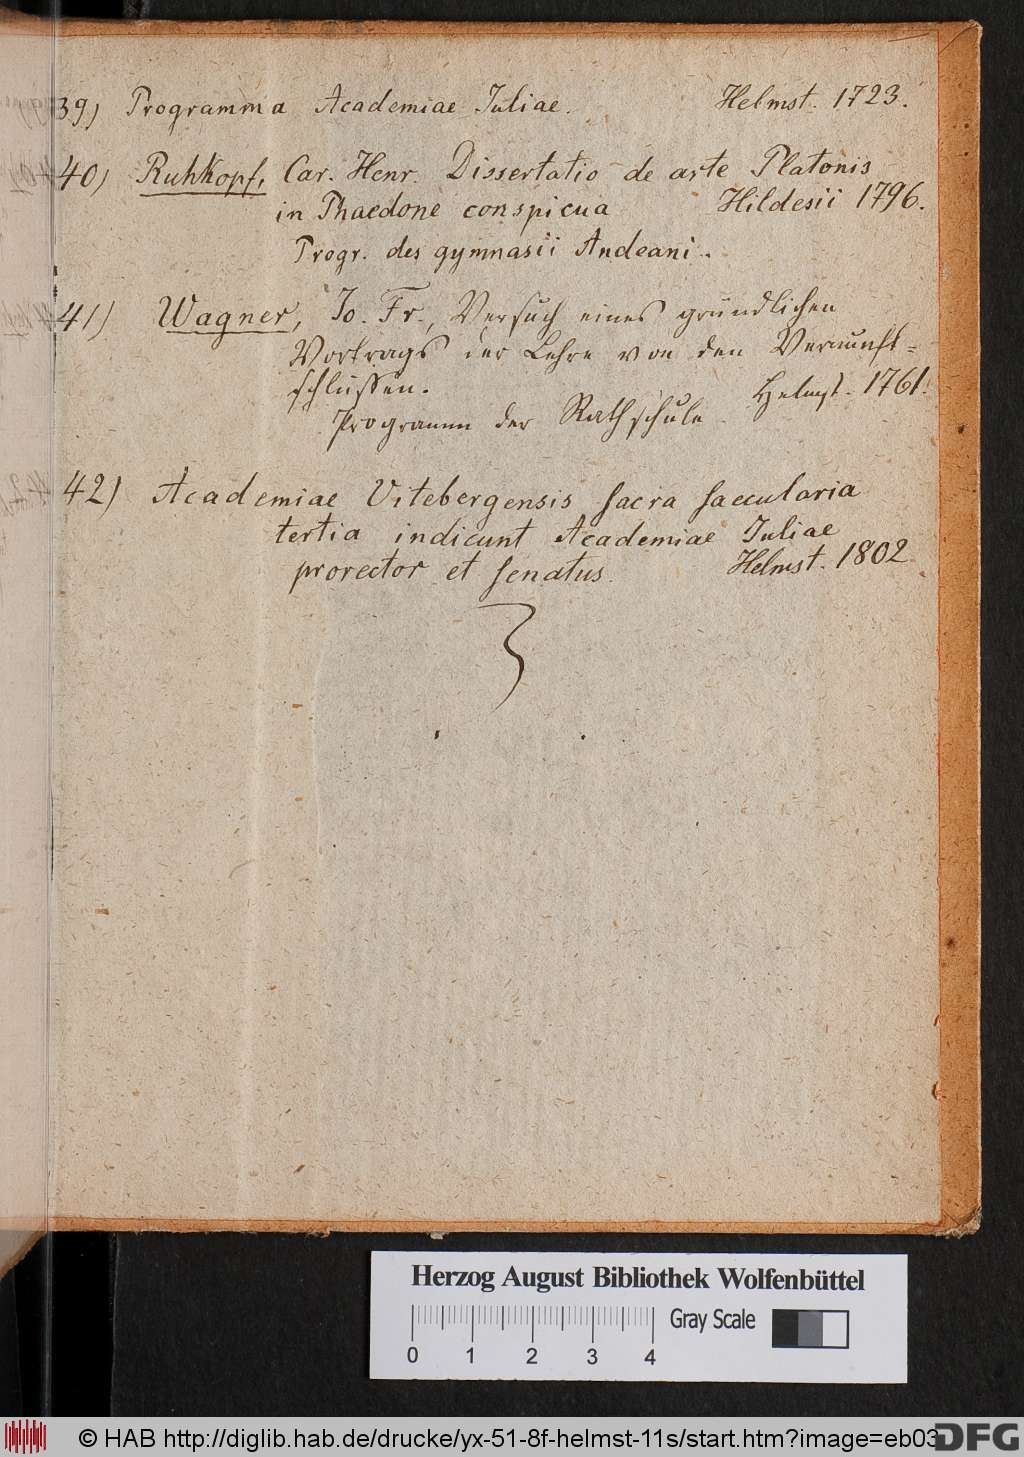 39) Programma Academiae Juliae. Helmst. 1723.
40) Ruhkopf, Car. Henr. Dissertatio de arte Platonis
in Phaedone conspicua Hildesii 1796.
Progr. des gymnasii Andeani.
41) Wagner, Jo. Fr., Versuch eines gründlichen
Vortrags der Lehre von den Vernunft=
schlüssen. Helmst. 1761.
Programm der Rathschule
42) Academiae Vitebergensis sacra saecularia
tertia indicunt Academiae Juliae
prorector et senatus. Helmst. 1802
Herzog August Bibliothek Wolfenbüttel
Gray Scale
0 1 2 3 4
© HAB http://diglib.hab.de/drucke/yx-51-8f-helmst-11s/start.htm?image=eb03
DFG